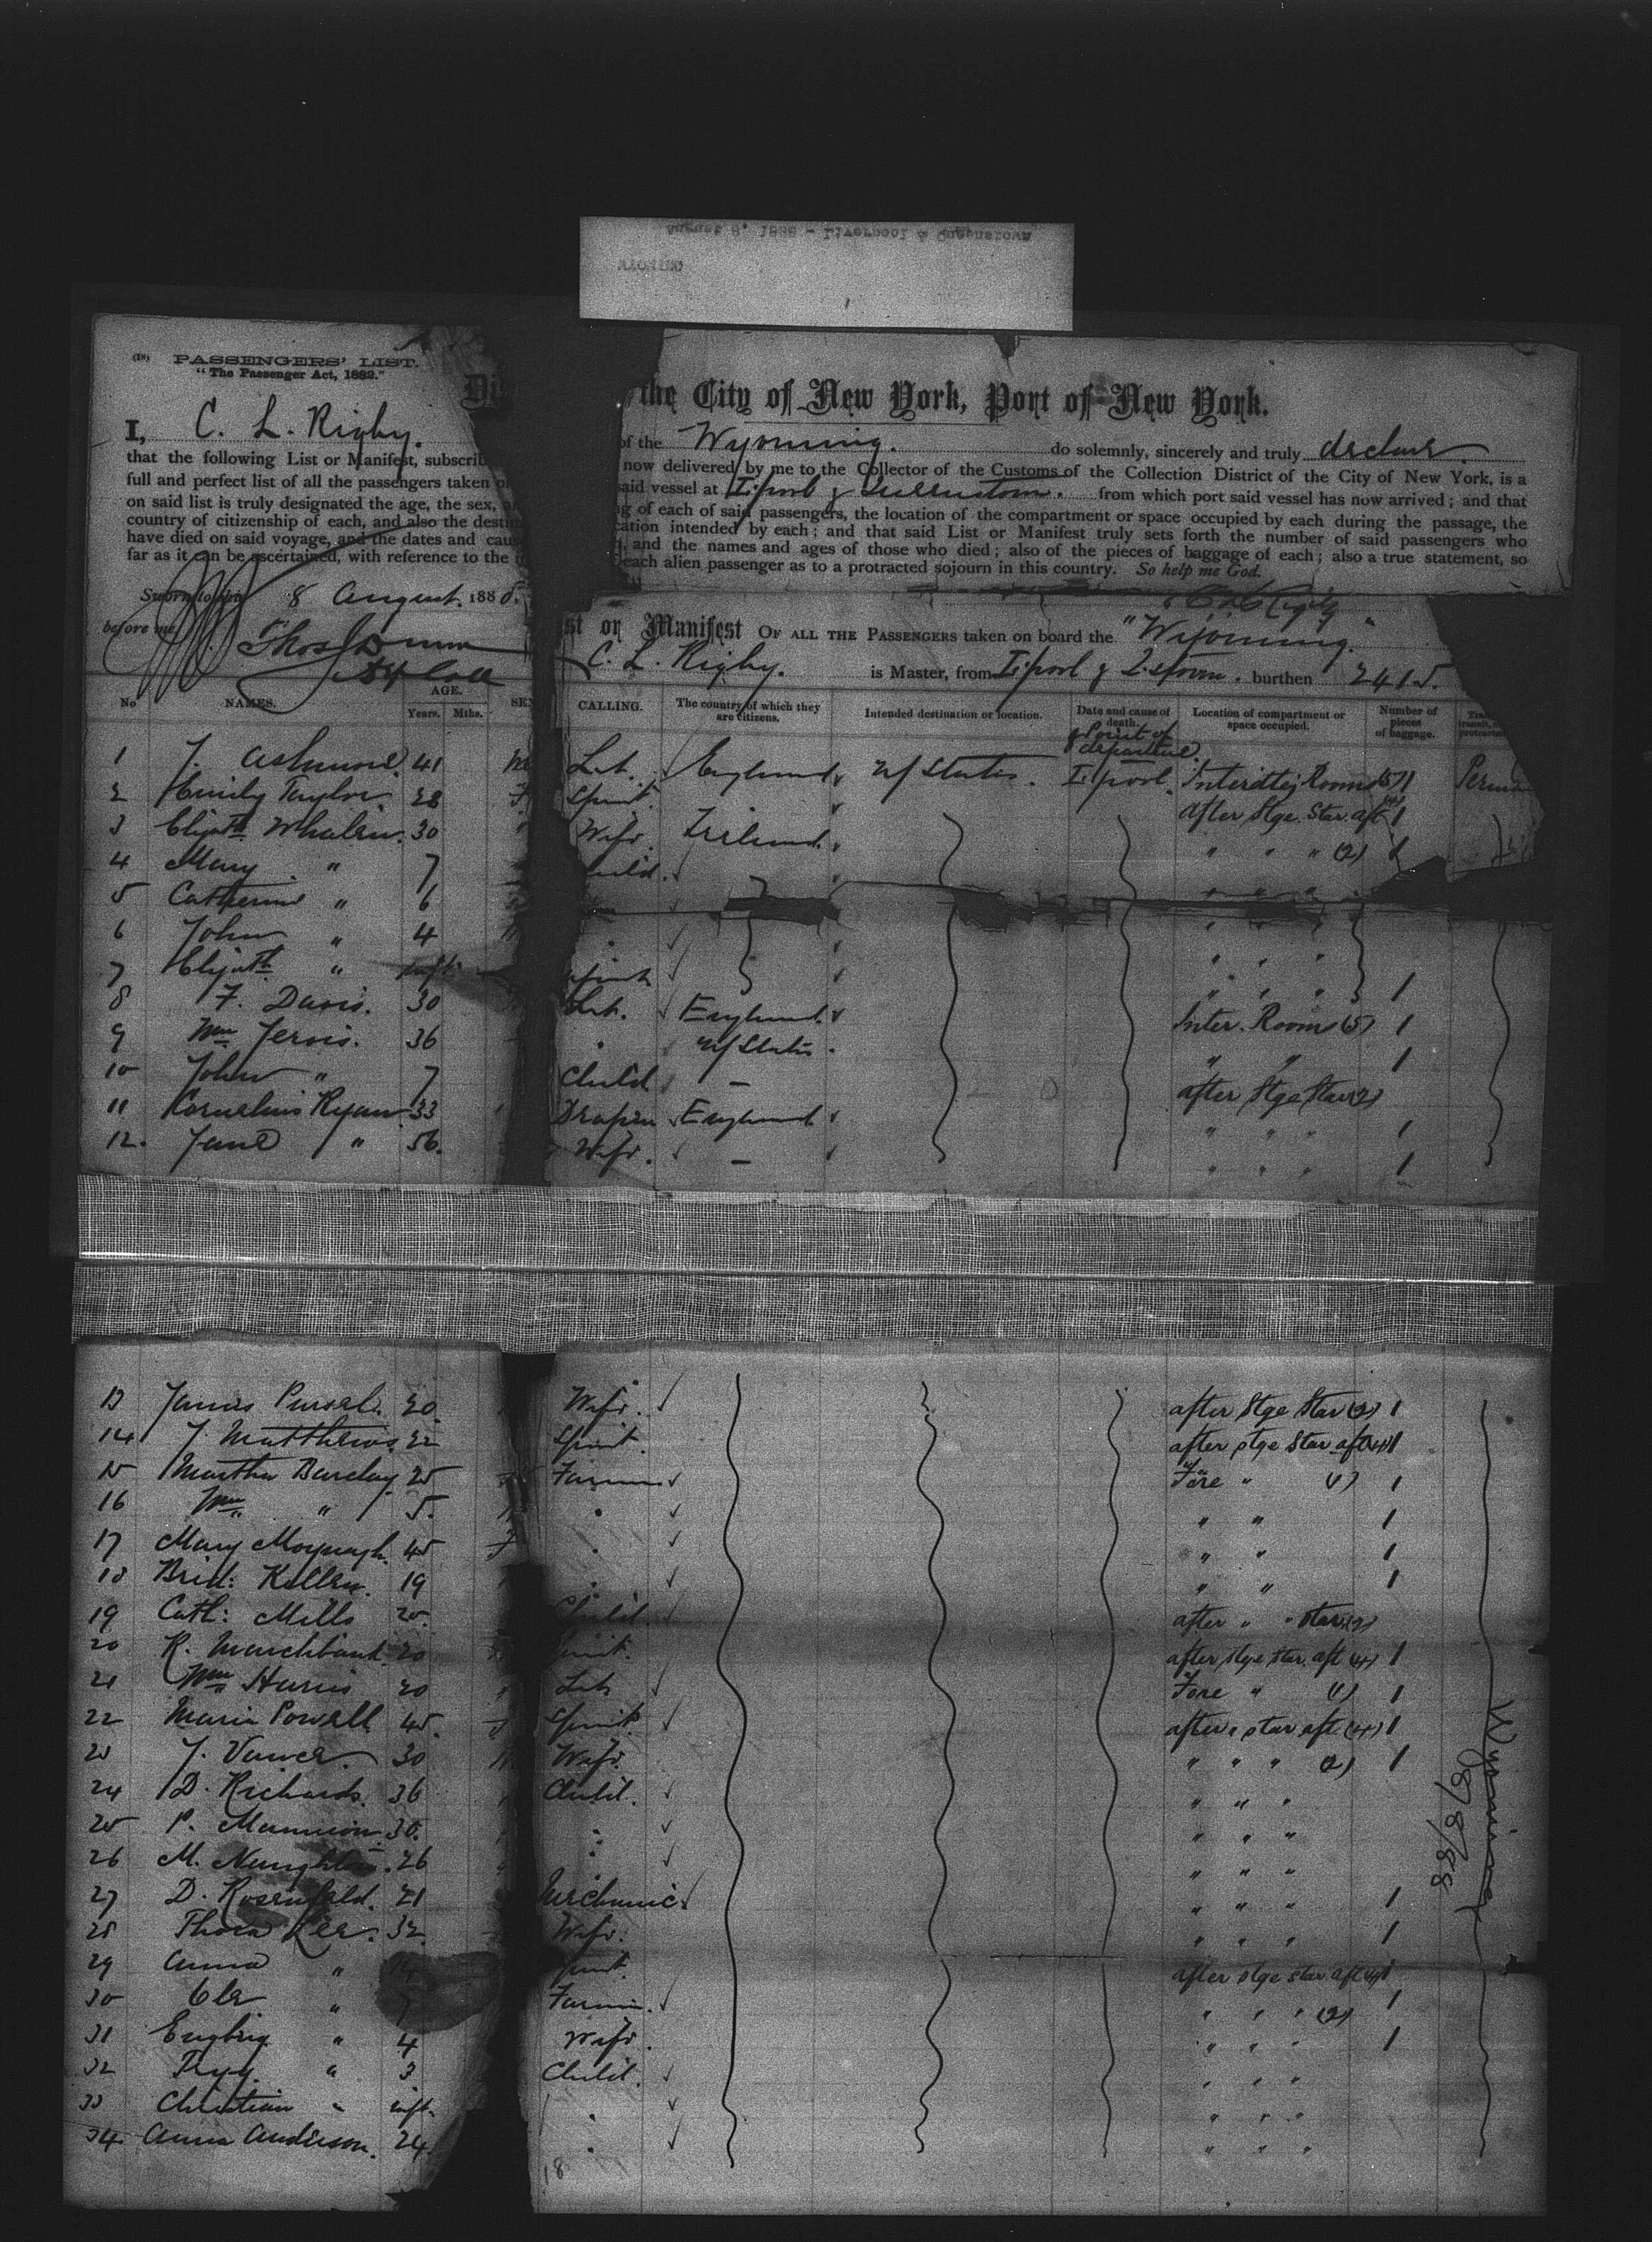 August 8, 1888 - Liverpool & Queenstown
WYOMING
(18) PASSENGERS' LIST.
"The Passenger Act, 1882."
Dis the City of New York, Port of New York.
I, C. L. Rigby. of the Wyoming. do solemnly, sincerely and truly declare
that the following List or Manifest, subscrib now delivered by me to the Collector of the Customs of the Collection District of the City of New York, is a
full and perfect list of all the passengers taken o said vessel at L'pool & Queenstown. from which port said vessel has now arrived; and that
on said list is truly designated the age, the sex, ng of each of said passengers, the location of the compartment or space occupied by each during the passage, the
country of citizenship of each, and also the desti cation intended by each; and that said List or Manifest truly sets forth the number of said passengers who
have died on said voyage, and the dates and caus and the names and ages of those who died; also of the pieces of baggage of each; also a true statement, so
far as it can be ascertained, with reference to the i each alien passenger as to a protracted sojourn in this country. So help me God.
Sworn to this 8 August. 1888. C. L. Rigby
before me Thos Dunn
st or Manifest OF ALL THE PASSENGERS taken on board the "Wyoming."
C. L. Rigby. is Master, from L'pool & Q'stown. burthen 2415.
No NAMES. AGE. Years. Mths. SEX CALLING. The country of which they are citizens. Intended destination or location. Date and cause of death. Location of compartment or space occupied. Number of pieces of baggage.
& Point of departure.
1 J. Ashmore. 41 Lab. England U/States. L'pool. Intermdtg Rooms (5) 1
2 Emily Taylor. 28 Spinst. After Stge. Star. aft (4) 1
3 Elizath Whalen. 30 Wife Ireland. " " " (2) 1
4 Mary " 7 Child. " " "
5 Catherine " 6 " " "
6 John " 4 " " " "
7 Elizath " Inft. " " " 1
8 F. Davis. 30 Lab. England. Inter. Rooms (5) 1
9 Wm Jervis. 36 " U/States. " " 1
10 John " 7 Child — After Stge Star (2)
11 Cornelius Ryan 33 Draper England " " " 1
12. Jane " 56. Wife. — " " " 1
13 James Pursel. 20 Wife. after Stge Star (2) 1
14 J. Matthews. 22 Spinst. after stge Star aft (4) 1
15 Martha Barclay 25 Farmer Fore " (1) 1
16 Wm " 5. " " " 1
17 Mary Moynagh. 45 F " " " 1
18 Brid: Killen. 19 " " " 1
19 Cath: Mills 20. Child. after " " Star (2)
20 R. Marchbank. 20 Spinst. after Stge Star. aft (4) 1
21 Wm Harris 20 Lab Fore " (1) 1
22 Maria Powell 45. Spinst. after " star aft. (4) 1
23 J. Vance. 30 Wife. " " " (2) 1
24 D. Richards. 36 Child. " " "
25 P. Mannion. 30. " " " "
26 M. Naughton. 26 " " " "
27 D. Rosenfeld. 21 Mechanic. " " " 1
28 Thora Lee. 32. Wife. " " " 1
29 Anna " 14 Spinst. after stge star aft (4) 1
30 Ole " 7 Farmer. " " " (2) 1
31 " 4 Wife. " " " 1
32 " 3 Child. " " "
33 Christian " inft. " " " "
34. Anna Anderson. 24. " " " "
Wyoming
8/8/88
18